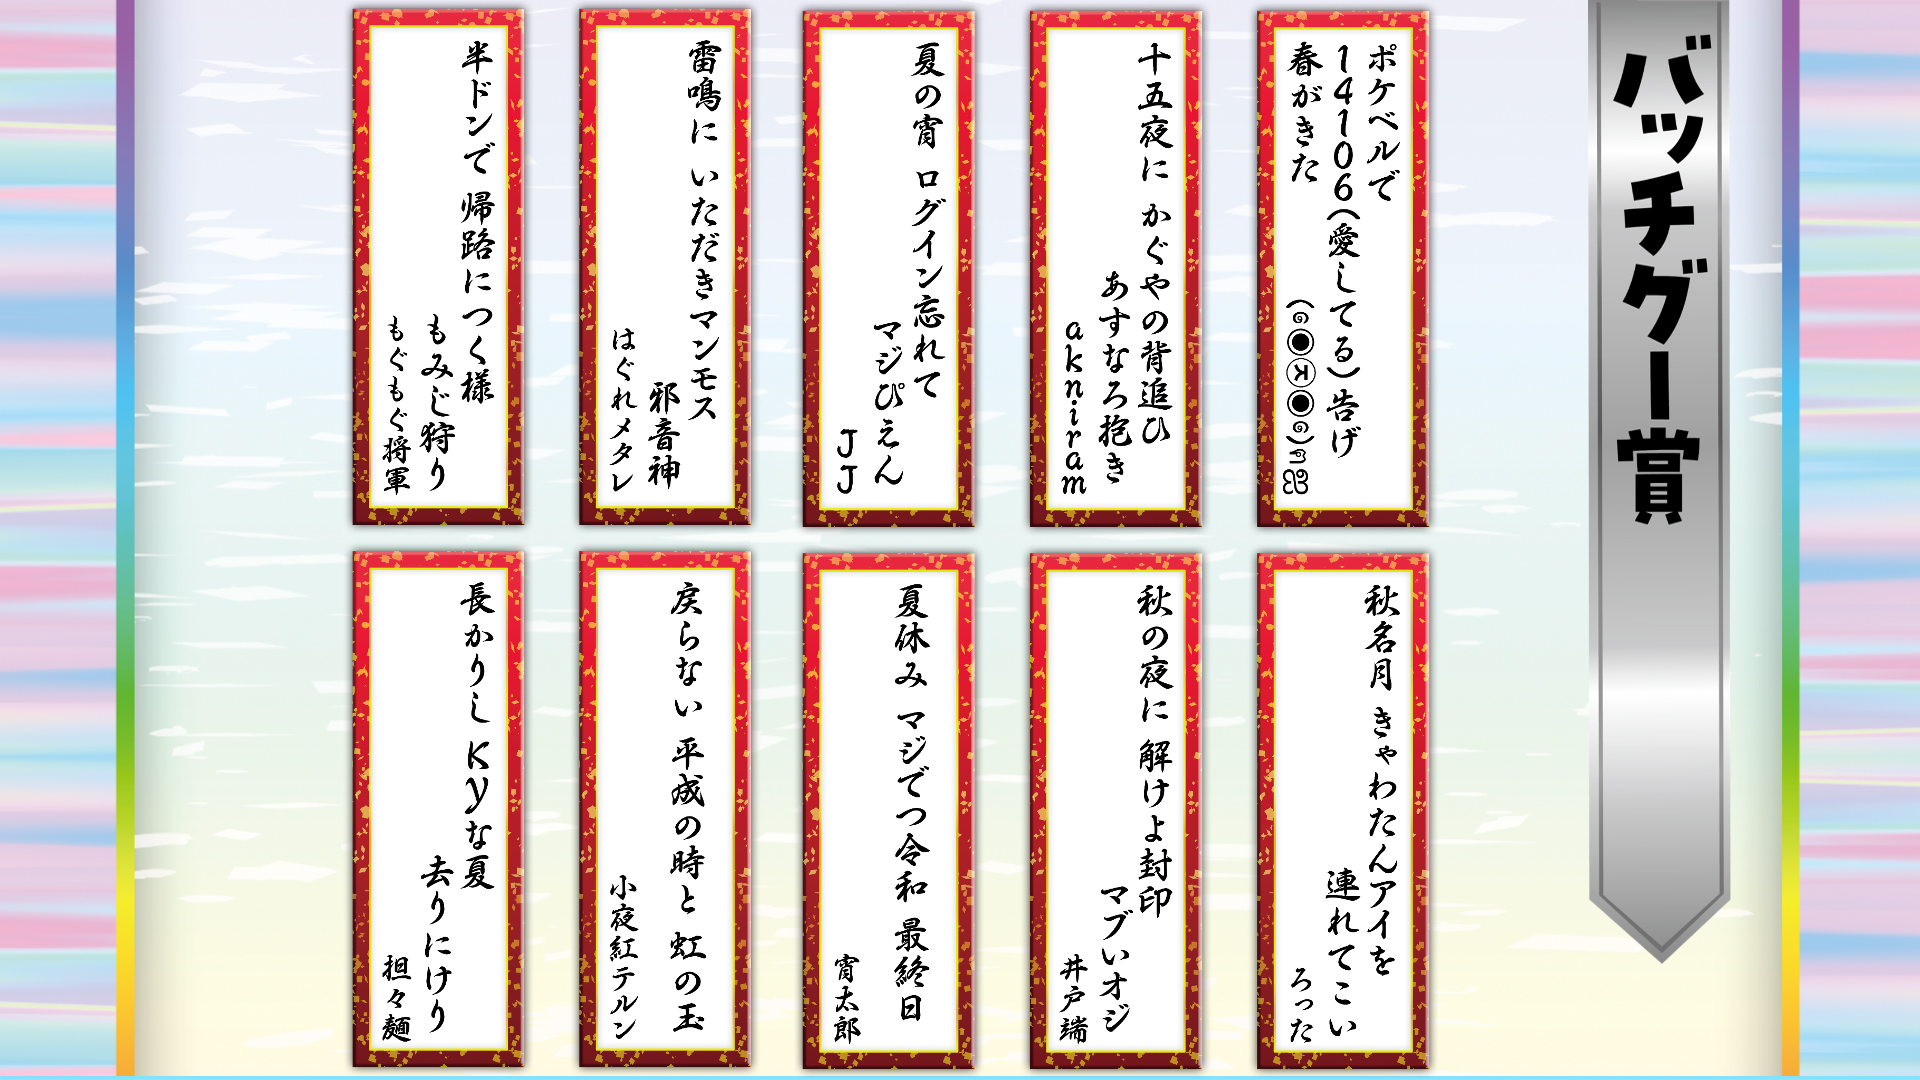 バッチグー賞
ポケベルで
14106(愛してる)告げ
春がきた
十五夜に かぐやの背追ひ
あすなろ抱き
akniram
夏の宵 ログイン忘れて
マジぴえん
JJ
雷鳴に いただきマンモス
邪音神
はぐれメタレ
半ドンで 帰路につく様
もみじ狩り
もぐもぐ将軍
秋名月 きゃわたんアイを
連れてこい
ろった
秋の夜に 解けよ封印
マブいオジ
井戸端
夏休み マジでつ令和 最終日
宵太郎
戻らない 平成の時と 虹の玉
小夜紅テルン
長かりし KYな夏
去りにけり
担々麺